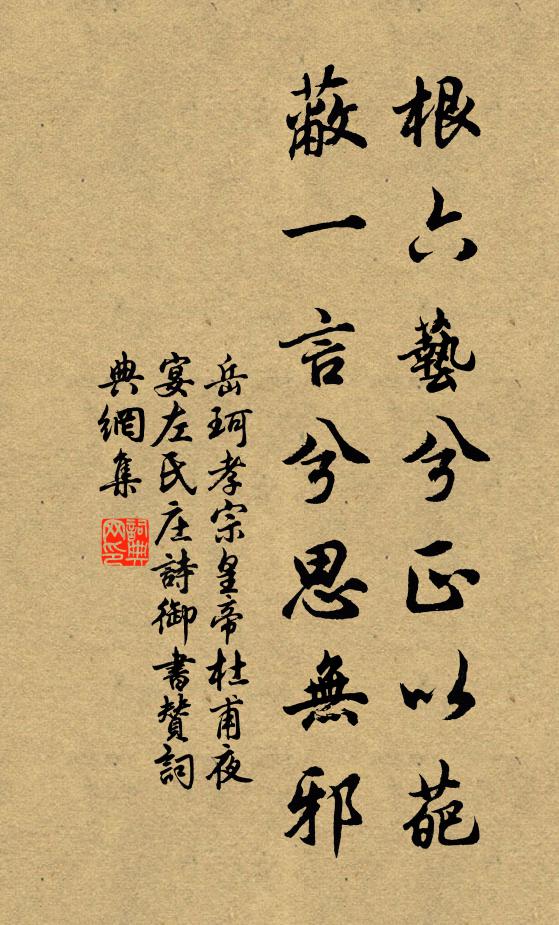 根六藝兮正以葩
蔽一言兮思無邪
岳珂孝宗皇帝杜甫夜
宴左氏庄詩御書贊詞
典網集
詞典网印